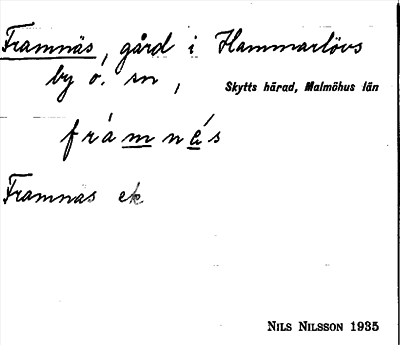 Framnäs, gård i Hammarlövs
by o. sn, Skytts härad, Malmöhus län
frámnę́s
Framnäs ek
NILS NILSSON 1935